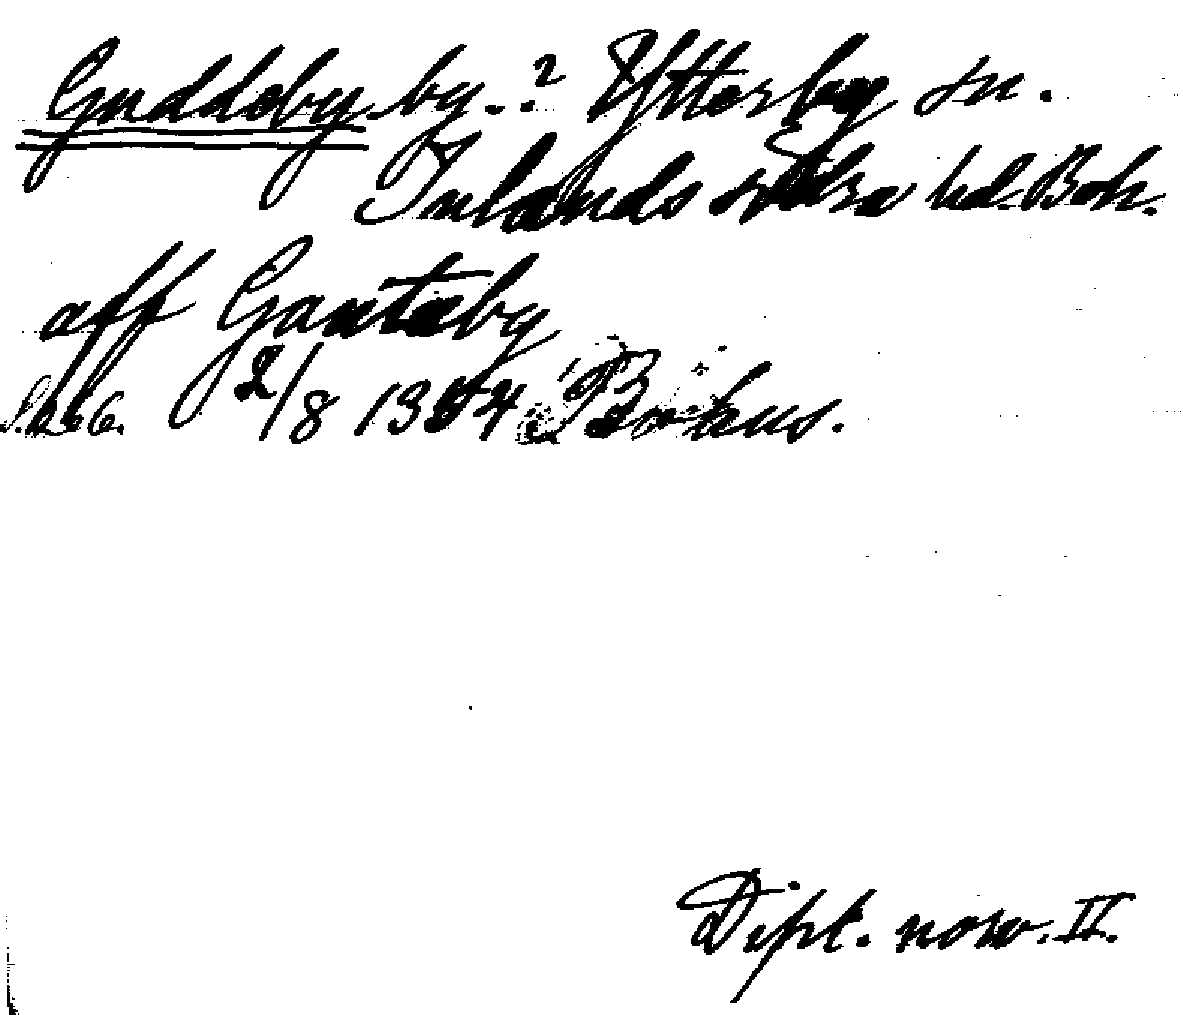 Guddeby by.? Ytterby sn.
Inlands södra hd. Boh.
aff Gautaby
S. 266. 2/8 1354 Bohus.
Dipl. norv. II.